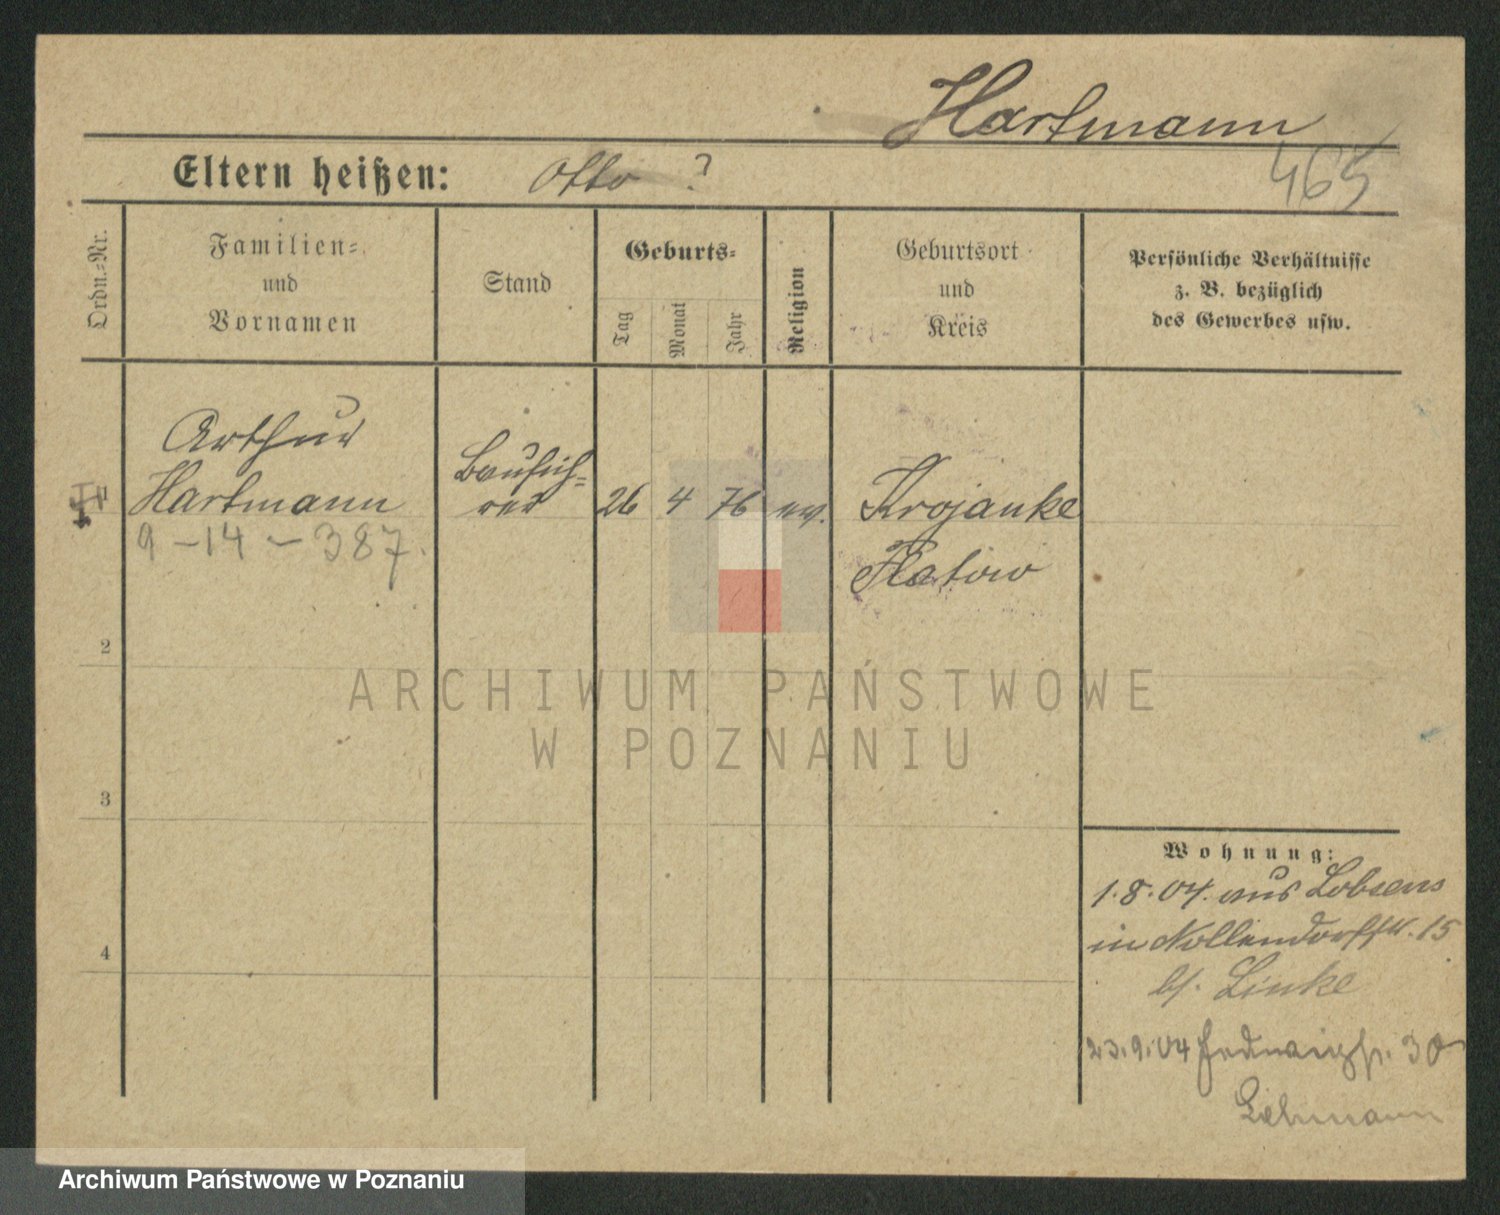 Hartmann
465
Eltern heißen: Otto ?
Ordn.-Nr.
Familien-
und
Vornamen
Stand
Geburts-
Tag
Monat
Jahr
Religion
Geburtsort
und
Kreis
Persönliche Verhältnisse
z. B. bezüglich
des Gewerbes usw.
Arthur
1 Hartmann
Baufüh-
rer
26 4 76 ev.
Krojanke
Flatow
9-14-387.
2
3
4
Wohnung:
1.8.04. aus Lobsens
in Nollendorfstr. 15
b/. Linke
23.9.04 30
Lehmann
ARCHIWUM PAŃSTWOWE
W POZNANIU
Archiwum Państwowe w Poznaniu